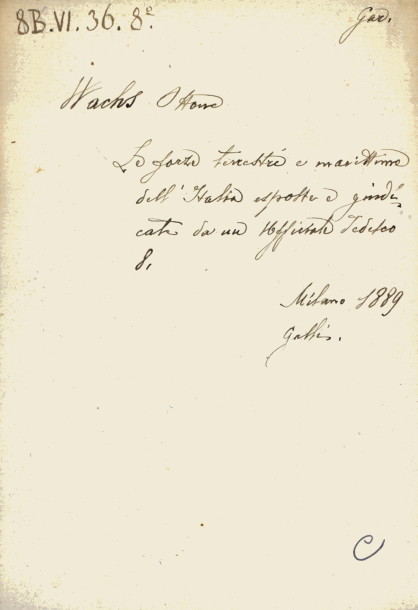 8B.VI.36.8°
Gar.
Wachs Ottone
Le forze terrestri e marittime
dell'Italia esposte e giudi-
cate da un Ufficiale Tedesco
8.
Milano 1889
Galli.
C